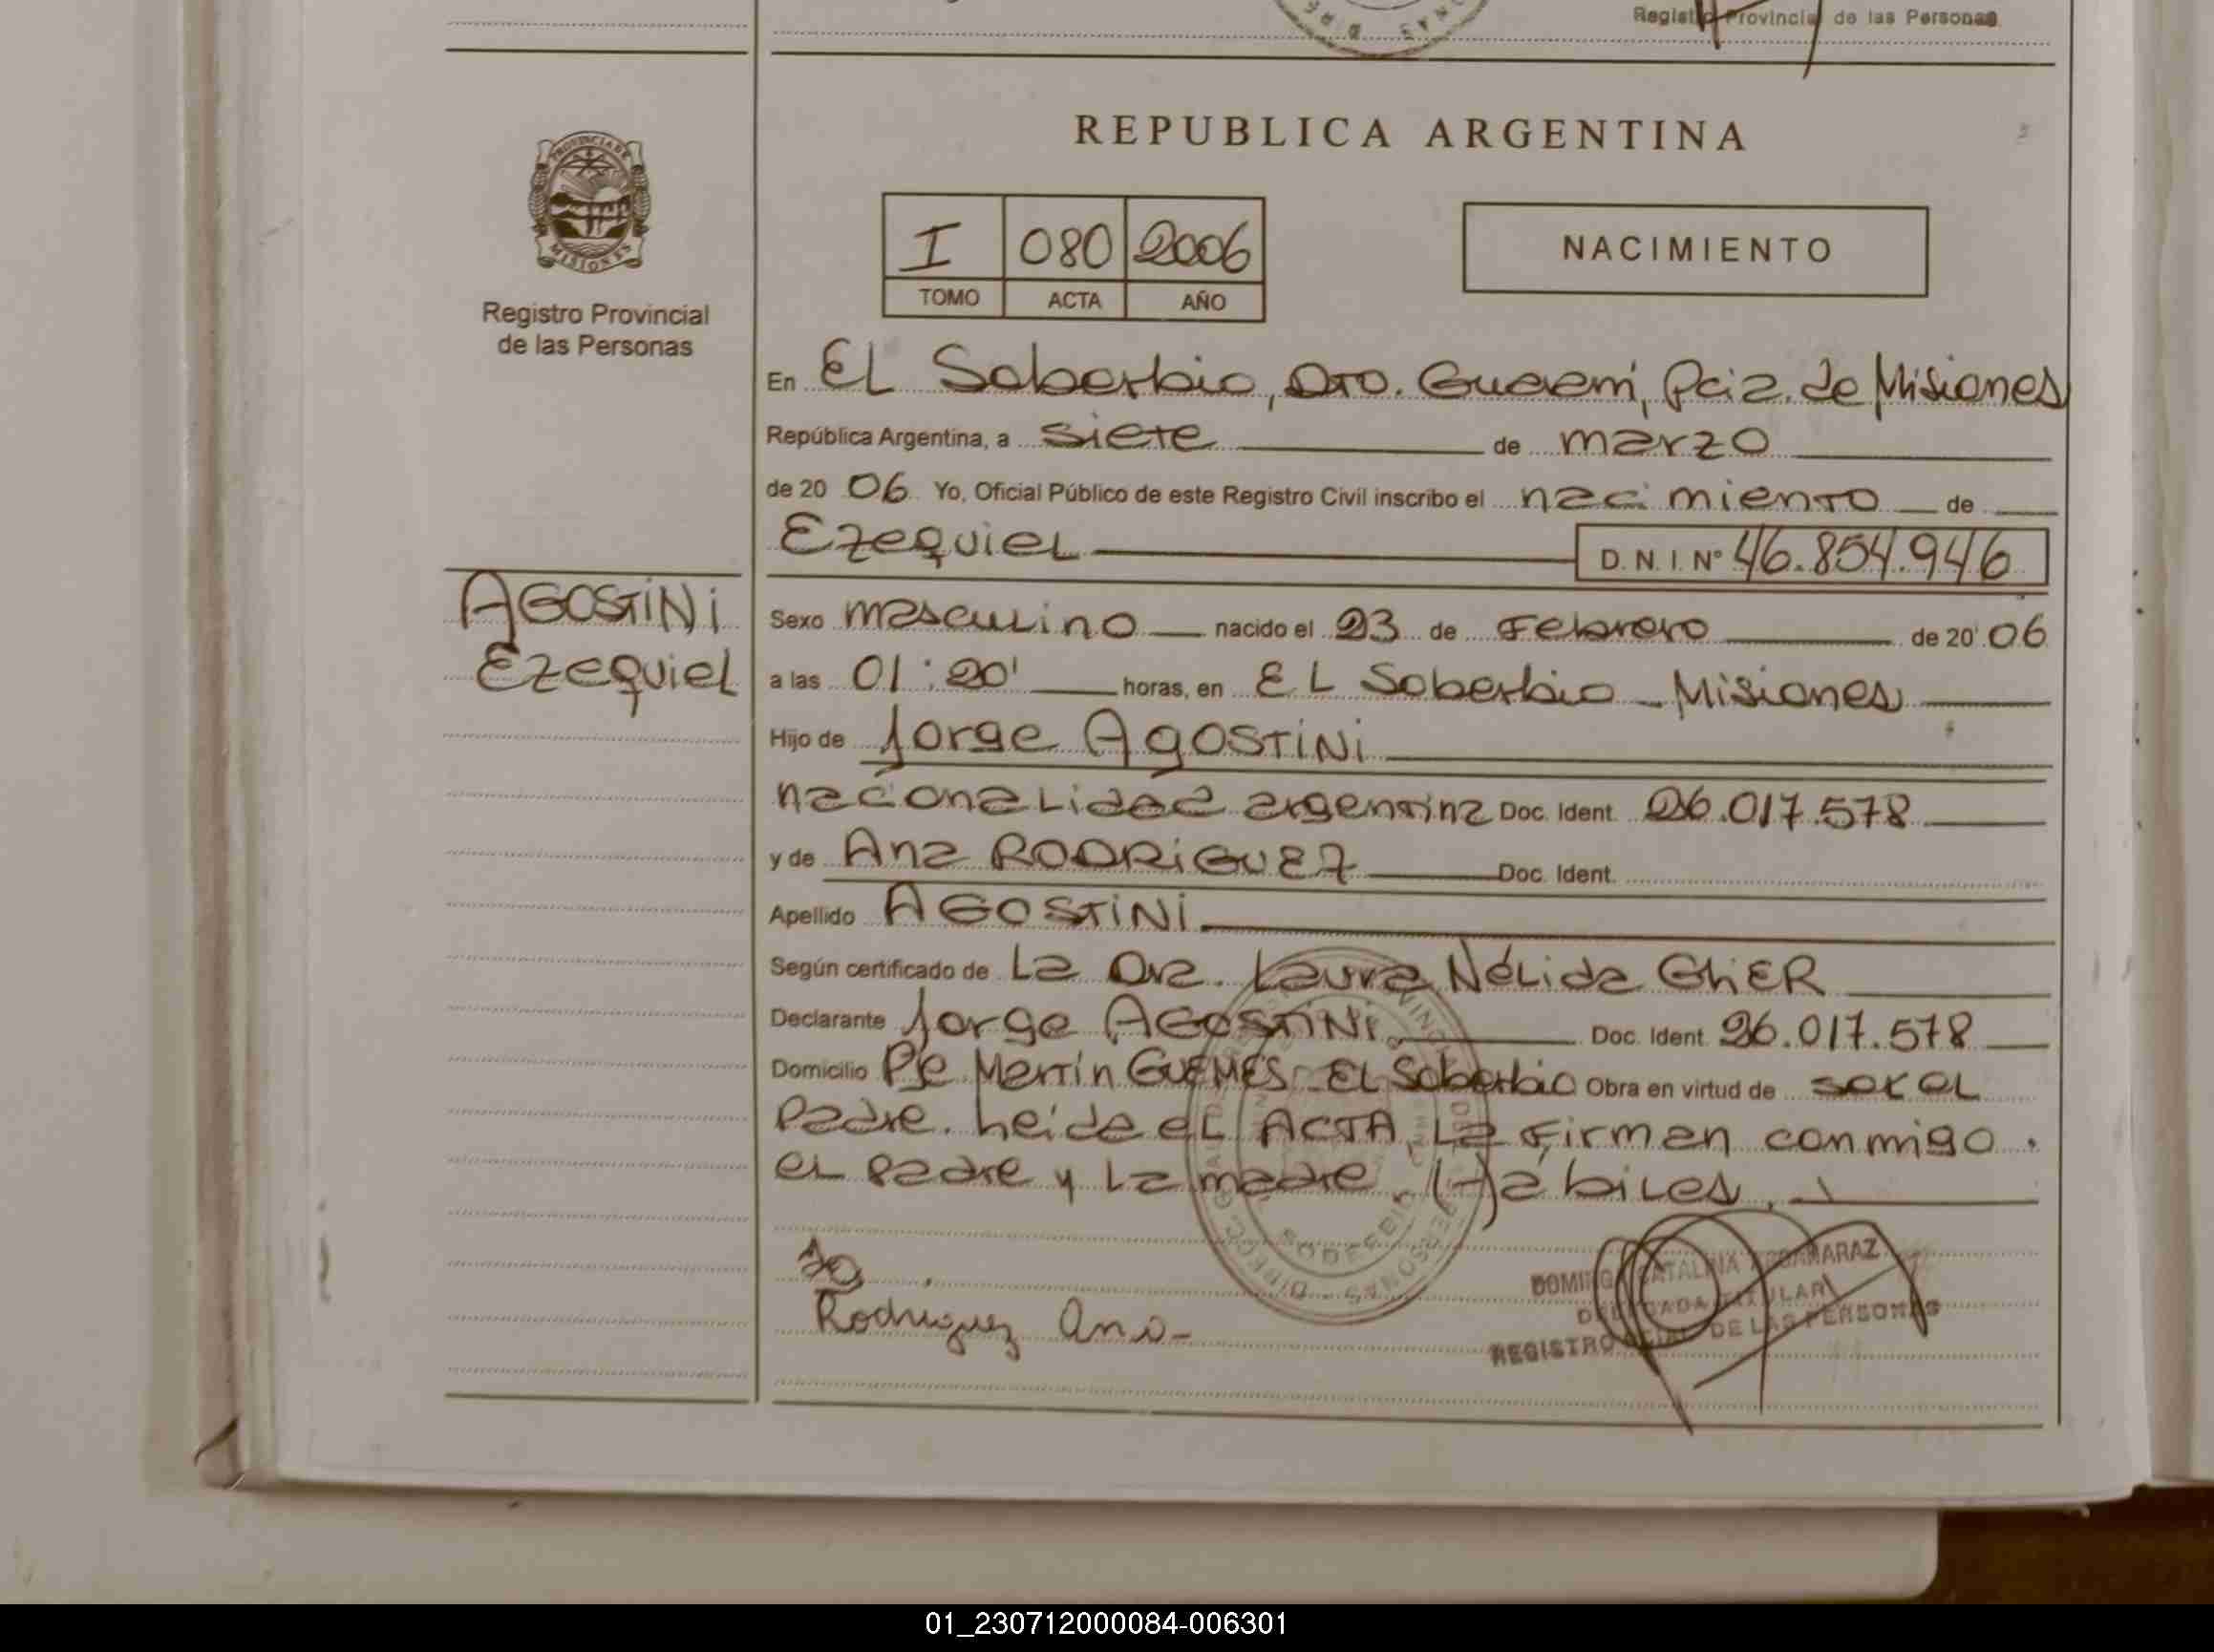 Registro Provincial de las Personas
REPUBLICA ARGENTINA
PROVINCIA DE
MISIONES
Registro Provincial
de las Personas
I 080 2006
TOMO ACTA AÑO
NACIMIENTO
En EL Soberbio, Dto. Guaraní, Pcia. de Misiones
República Argentina, a siete de marzo
de 20 06 Yo, Oficial Público de este Registro Civil inscribo el nacimiento de
Ezequiel D. N. I. Nº 46.854.946
AGOSTINI
Ezequiel
Sexo masculino nacido el 23 de Febrero de 20 06
a las 01:20' horas, en EL Soberbio - Misiones
Hijo de Jorge AgOSTINI
nacionalidad argentina Doc. Ident. 26.017.578
y de Ana RODRIGUEZ Doc. Ident.
Apellido AGOSTINI
Según certificado de La Dra. Laura NéLida GhER
Declarante Jorge AGOSTINI Doc. Ident. 26.017.578
Domicilio Pje Martín GUEMES - EL Soberbio Obra en virtud de ser el
Padre. Leida el ACTA, La Firman conmigo.
el padre y La madre, Hábiles.
Rodriguez Ana-
DOMINGA CATALINA
DELEGADA TITULAR
REGISTRO DE LAS PERSONAS
01_230712000084-006301